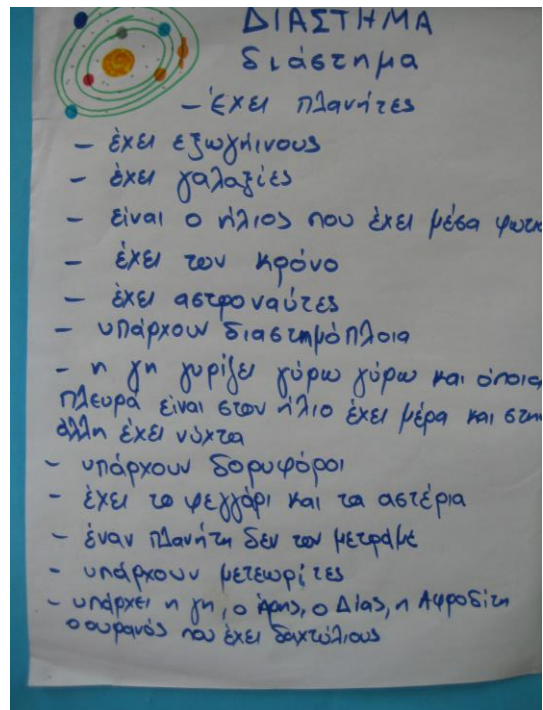 ΔΙΑΣΤΗΜΑ
διάστημα
- Έχει πλανήτες
- έχει εξωγήινους
- έχει γαλαξίες
- είναι ο ήλιος που έχει μέσα φωτι
- έχει τον κρόνο
- έχει αστροναύτες
- υπάρχουν διαστημόπλοια
- η γη γυρίζει γύρω γύρω και όποια
πλευρά είναι στον ήλιο έχει μέρα και στην
άλλη έχει νύχτα
- υπάρχουν δορυφόροι
- έχει το φεγγάρι και τα αστέρια
- έναν πλανήτη δεν τον μετράμε
- υπάρχουν μετεωρίτες
- υπάρχει η γη, ο Άρης, ο Δίας, η Αφροδίτη
ο ουρανός που έχει δαχτύλιους